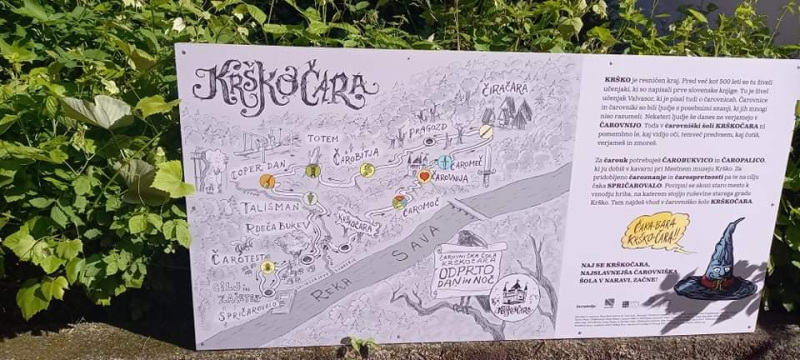 KRŠKOČARA
ČIRAČARA
PRAGOZD
TOTEM
ČAROBITJA
COPER DAN
ČAROMOČ
ČAROVNIJA
TALISMAN
ČAROMOČ
RDEČA BUKEV
KRŠKOČARA
ČAROTEST
SPRIČAROVALO
REKA SAVA
ČAROVNIŠKA ŠOLA
KRŠKOČARA
ODPRTO
DAN IN NOČ
KRŠKOČARA
KRŠKO je resničen kraj. Pred več kot 500 leti so tu živeli
učenjaki, ki so napisali prve slovenske knjige. Tu je živel
učenjak Valvasor, ki je pisal tudi o čarovnicah. Čarovnice
in čarovniki so bili ljudje s posebnimi znanji, ki jih mnogi
niso razumeli. Nekateri ljudje še danes ne verjamejo v
ČAROVNIJO. Toda v čarovniški šoli KRŠKOČARA ni
pomembno le, kaj vidijo oči, temveč predvsem, kaj čutiš,
verjameš in zmoreš.
Za čarouk potrebuješ ČAROBUKVICO in ČAROPALICO,
ki ju dobiš v kavarni pri Mestnem muzeju Krško. Za
pridobljeno čaroznanje in čarospretnosti pa te na cilju
čaka SPRIČAROVALO. Povzpni se skozi staro mesto k
vznožju hriba, na katerem stojijo ruševine starega gradu
Krško. Tam najdeš vhod v čarovniško šolo KRŠKOČARA.
ČARA-BARA
KRŠKO-ČARA!!
NAJ SE KRŠKOČARA,
NAJSLAVNEJŠA ČAROVNIŠKA
ŠOLA V NARAVI, ZAČNE!